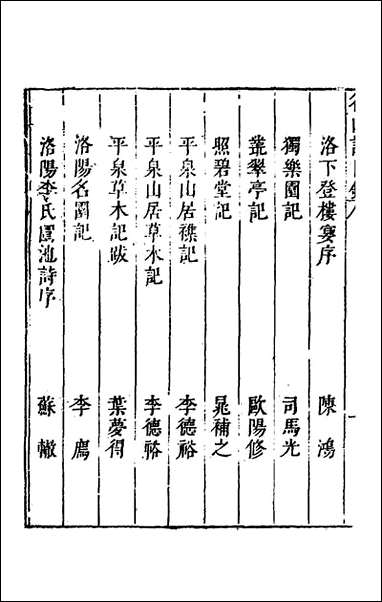 洛下登樓賽序 陳鴻
獨樂園記 司馬光
叢翠亭記 歐陽修
照碧堂記 晁補之
平泉山居襍記 李德裕
平泉山居草木記 李德裕
平泉草木記跋 葉夢得
洛陽名園記 李廌
洛陽李氏園池詩序 蘇轍